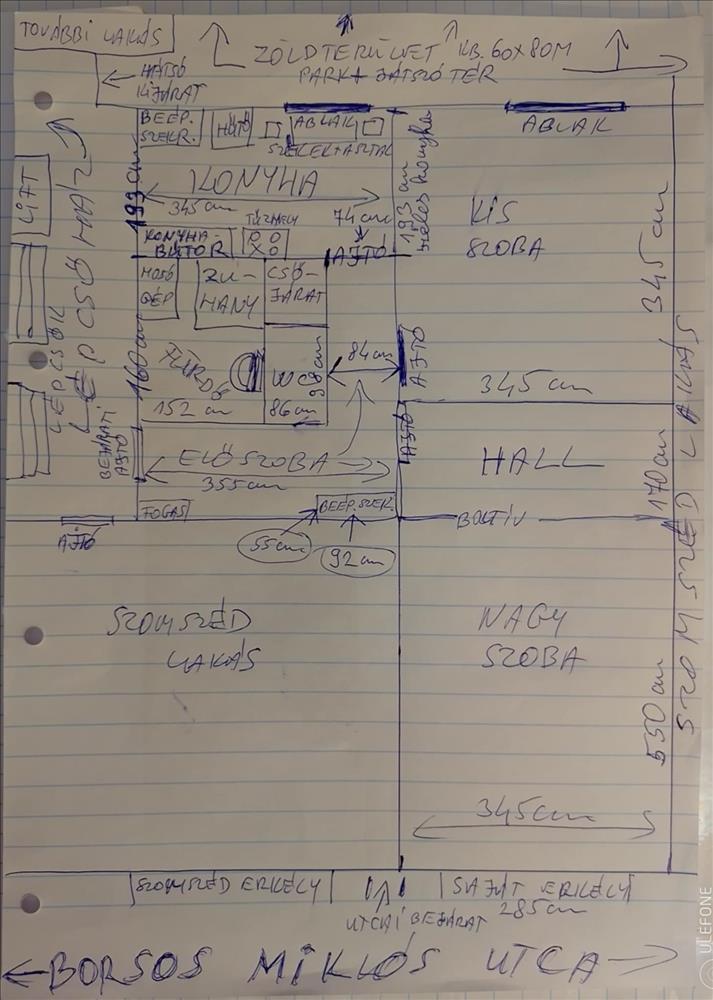 TOVÁBBI LAKÁS
ZÖLDTERÜLET KB. 60X80M
PARK+JÁTSZÓTÉR
HÁTSÓ
KIJÁRAT
BEÉP.
SZEKR.
HŰTŐ
ABLAK
SZÉKEK+ASZTAL
ABLAK
LIFT
LÉPCSŐHÁZ
LÉPCSŐK
193 cm
KONYHA
345 cm
TŰZHELY
74 cm
193 cm
széles konyha
KONYHA-
BÚTOR
AJTÓ
KIS
SZOBA
345 cm
MOSÓ
GÉP
ZU-
HANY
CSŐ-
JÁRAT
160 cm
FÜRDŐ
152 cm
WC
98 cm
86 cm
84 cm
AJTÓ
345 cm
BEJÁRATI
AJTÓ
ELŐSZOBA
355 cm
AJTÓ
HALL
170 cm
FOGAS
BEÉP. SZEKR.
BOLTÍV
AJTÓ
55 cm
92 cm
SZOMSZÉD LAKÁS
SZOMSZÉD
LAKÁS
NAGY
SZOBA
550 cm
345 cm
SZOMSZÉD ERKÉLY
SAJÁT ERKÉLY
285 cm
UTCAI BEJÁRAT
BORSOS MIKLÓS UTCA
ULEFONE